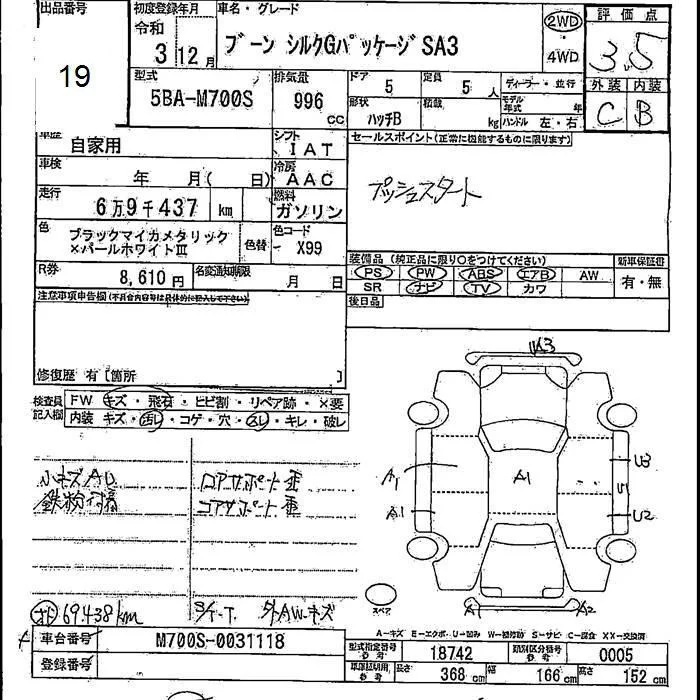 出品番号 初度登録年月 車名・グレード
19
令和 3 12月
ブーン シルクGパッケージSA3
2WD
4WD
評価点
3.5
外装 内装
C B
型式
5BA-M700S
排気量
996 cc
ドア 5
定員 5人
ディーラー・並行
形状 ハッチB
積載 kg
モデル年式 年
ハンドル 左・右
車歴 自家用
シフト IAT
セールスポイント(正常に機能するものに限ります)
プッシュスタート
車検 年 月( 日)
冷房 AAC
走行 6万9千437 km
燃料 ガソリン
色 ブラックマイカメタリック×パールホワイトⅢ
色替 -
色コード X99
装備品(純正品に限り○をつけてください) 新車保証書
PS PW ABS エアB AW 有・無
SR ナビ TV カワ
後日品
R券 8,610円
名変通知期限 月 日
注意事項申告欄(不具合内容等は具体的に記入して下さい)
修復歴 有[箇所 ]
検査員記入欄
FW キズ・飛石・ヒビ割・リペア跡・×要
内装 キズ・汚レ・コゲ・穴・スレ・キレ・破レ
小キズAU
鉄粉付着
コアサポート歪
コアサポート
69438km
S/C-T. 外AWキズ
UA3
A1
A1
A1
U3
U1
U2
A1
A2
スペア
A-キズ E-エクボ U-凹み W-補修跡 S-サビ C-腐食 XX-交換済
車台番号 M700S-0031118
登録番号
型式指定番号 参考 18742
類別区分番号 参考 0005
車庫証明用 参考 長さ 368cm 幅 166cm 高さ 152cm